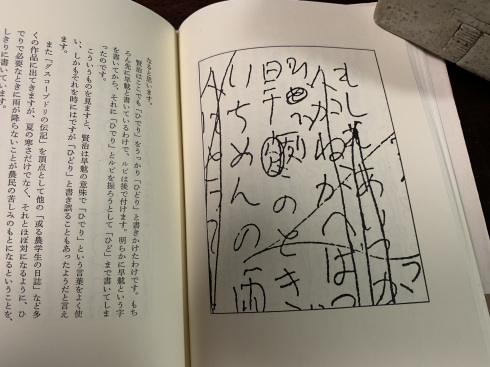 のとき
いちめんの雨
なると思います。
賢治はここでも「ひでり」をうっかり「ひどり」と書きかけたわけです。もち
ろん先に旱魃と書いているわけで、ルビは後で付けます。明らかに旱魃という字
を書いてから、それに「ひでり」とルビを振ろうとして「ひど」まで書いてしま
ったのです。
こういうものを見ますと、賢治は旱魃の意味で「ひでり」という言葉をよく使
い、しかもそれを時にはですが「ひどり」と書き誤ることもあったようだと言え
ます。
また「グスコーブドリの伝記」を頂点として他の「或る農学生の日誌」など多
くの作品に出てきますが、夏の寒さだけでなく、それとほぼ対になるように、ひ
でりで必要なときに雨が降らないことが農民の苦しみのもとになるということを、
しきりに書いています。